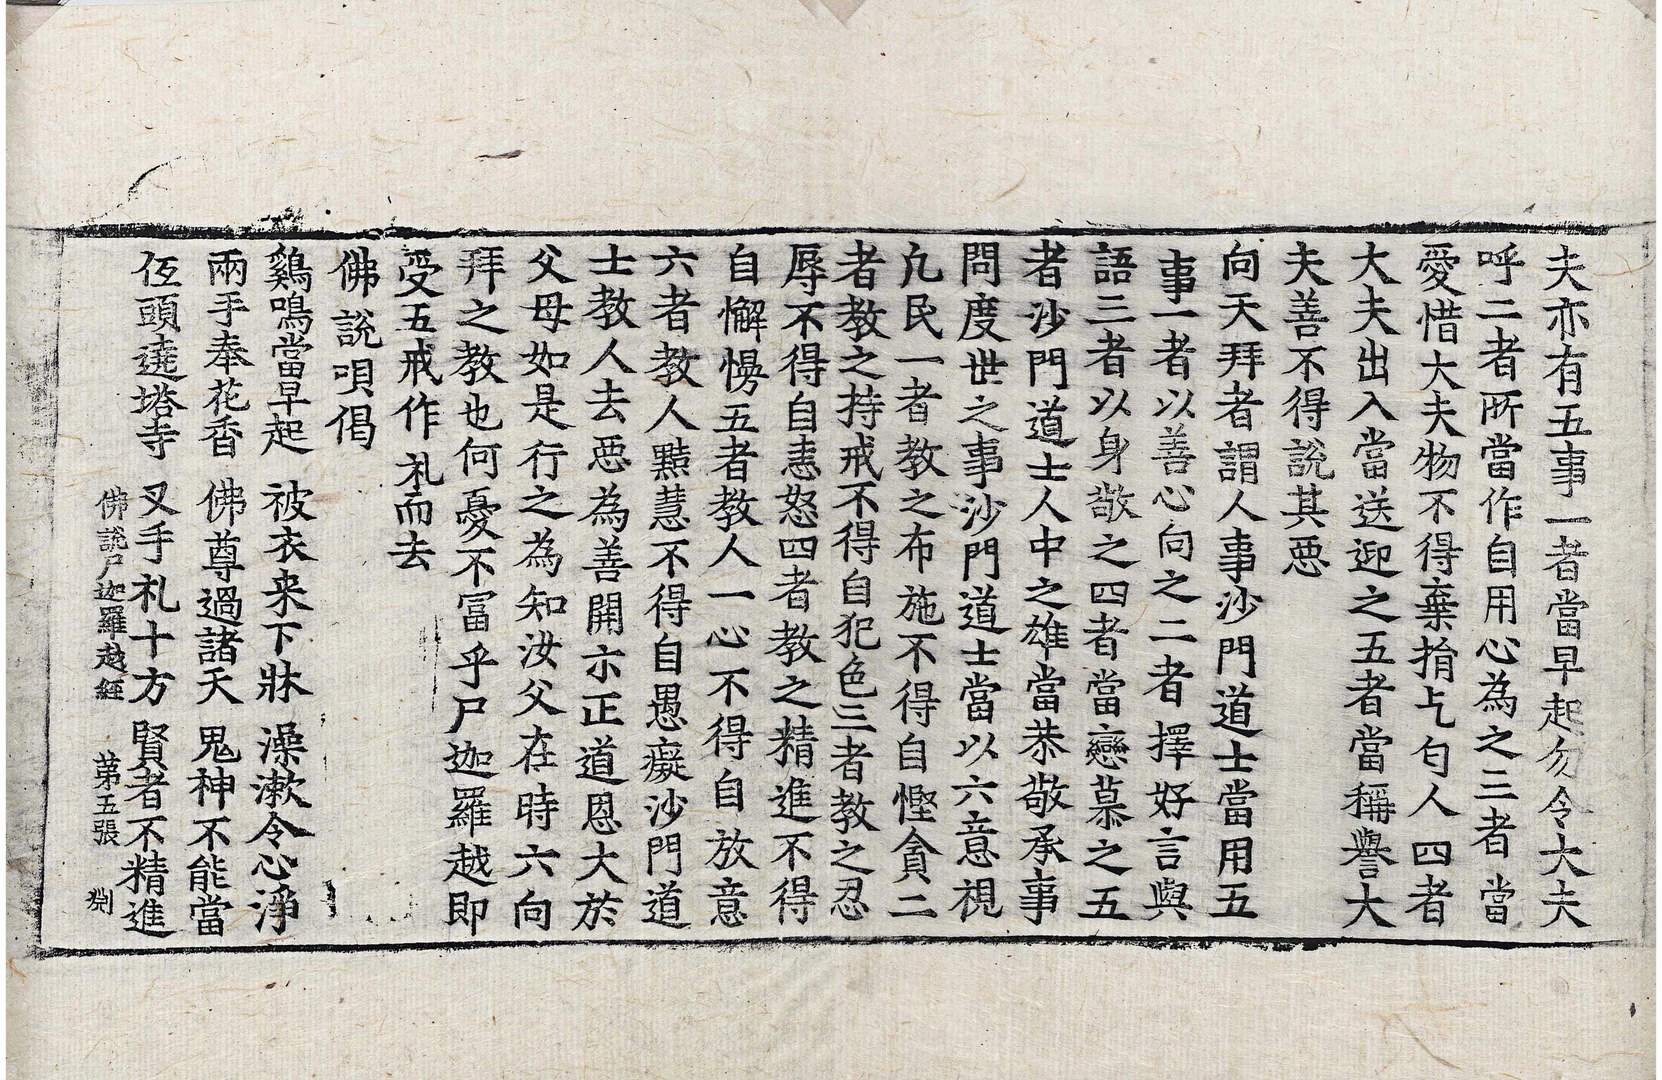 夫亦有五事一者當早起勿令大夫
呼二者所當作自用心為之三者當
愛惜大夫物不得棄捐乞匂人四者
大夫出入當送迎之五者當稱譽大
夫善不得說其惡
向天拜者謂人事沙門道士當用五
事一者以善心向之二者擇好言與
語三者以身敬之四者當戀慕之五
者沙門道士人中之雄當恭敬承事
問度世之事沙門道士當以六意視
凢民一者教之布施不得自慳貪二
者教之持戒不得自犯色三者教之忍
辱不得自恚怒四者教之精進不得
自懈慢五者教人一心不得自放意
六者教人黠慧不得自愚癡沙門道
士教人去惡為善開示正道恩大於
父母如是行之為知汝父在時六向
拜之教也何憂不冨乎尸迦羅越即
受五戒作礼而去
佛說唄偈
鷄鳴當早起 被衣来下牀 澡漱令心淨
兩手奉花香 佛尊過諸天 鬼神不能當
仾頭遶塔寺 叉手礼十方 賢者不精進
佛說尸迦羅越經 第五張